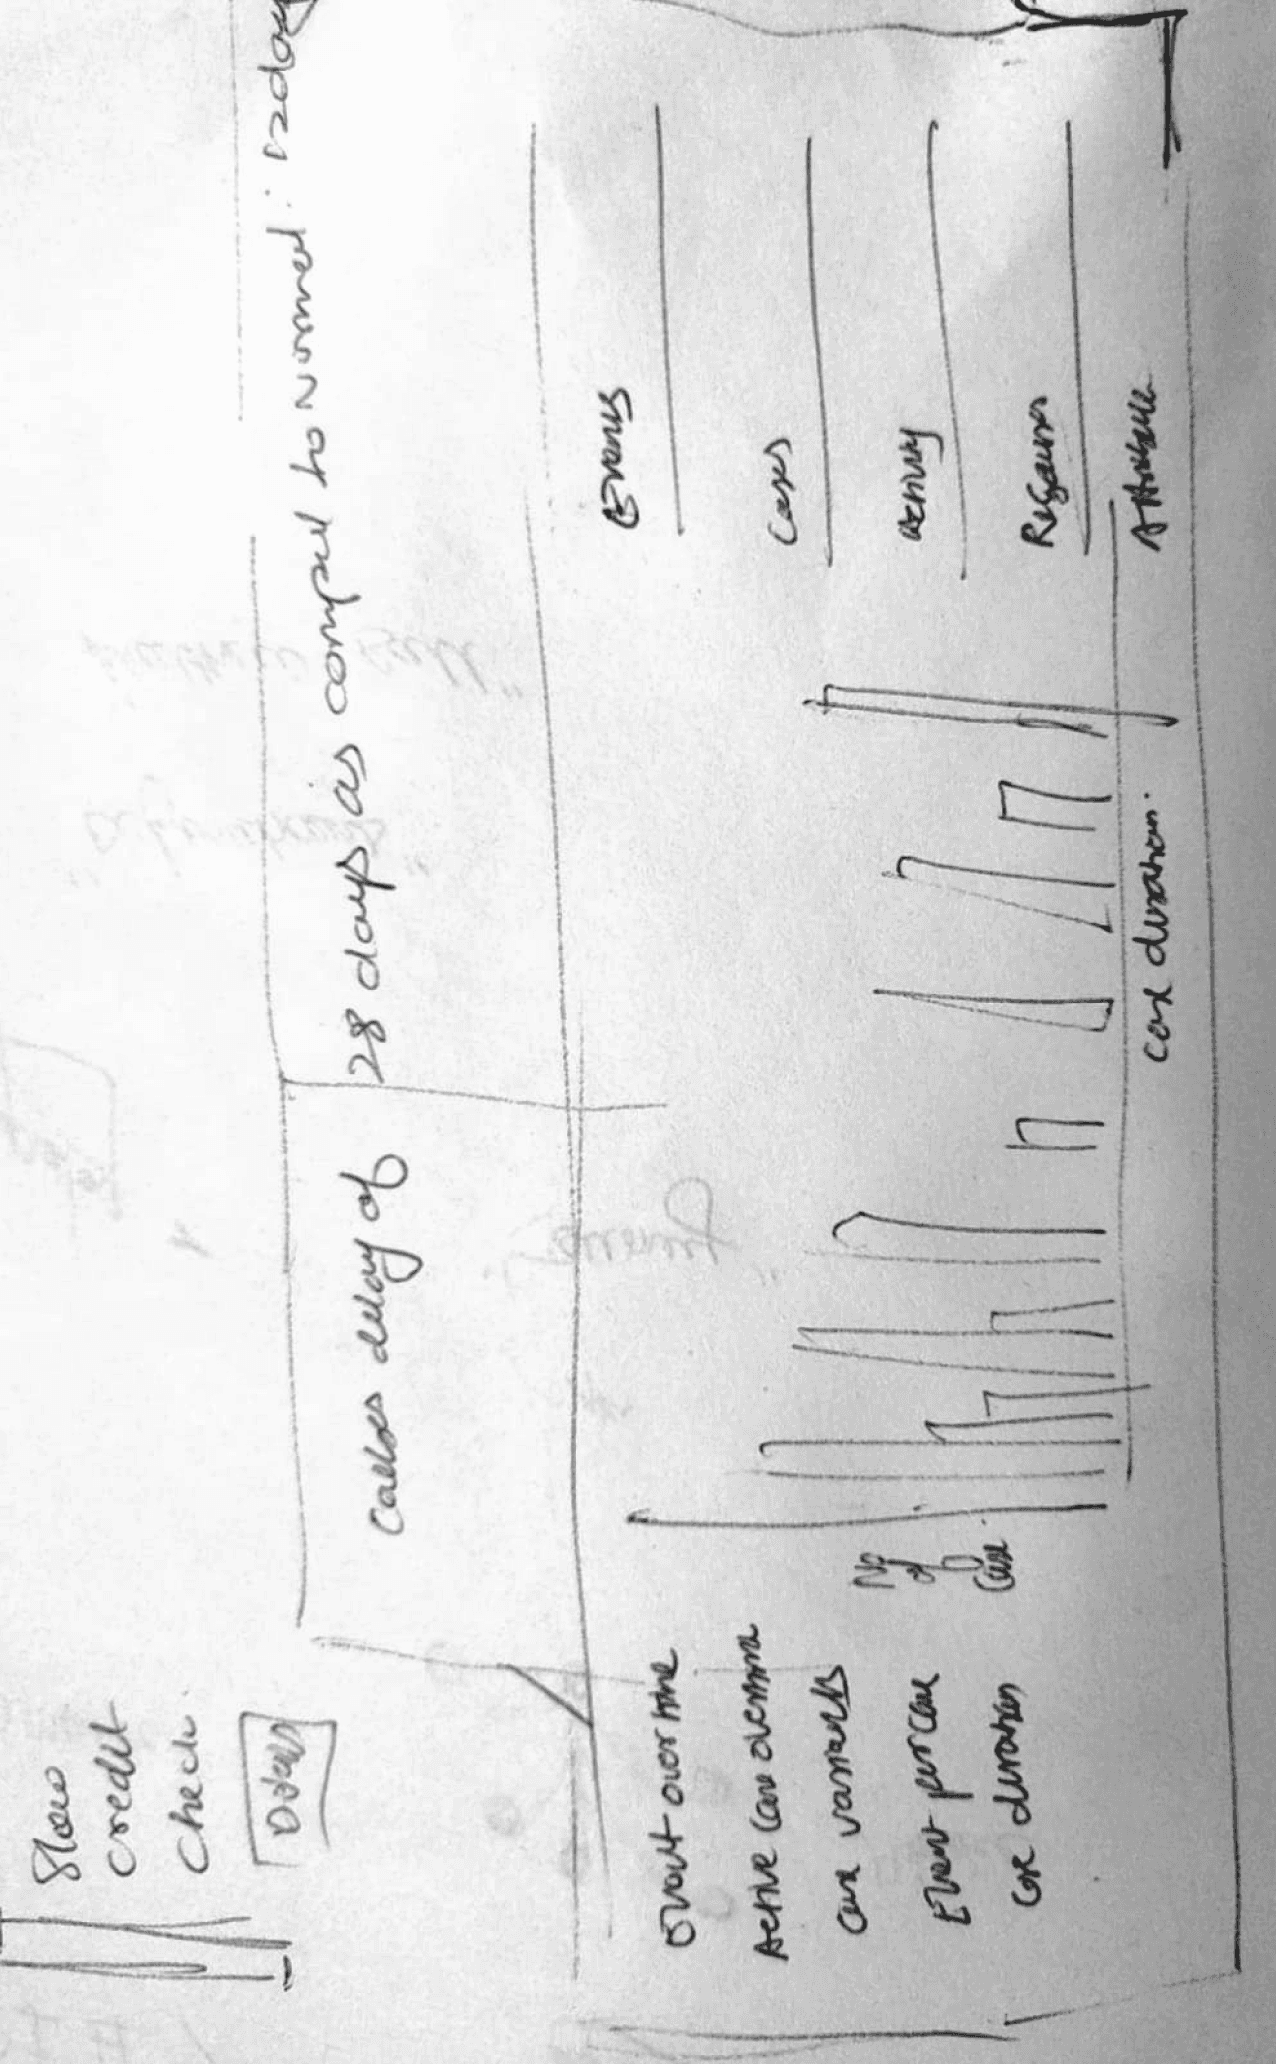 Slow
credit
Check
Details
causes delay of 28 days as compared to normal : 12 days
Event over time
Active case overtime
Case variants
Event per case
Case duration
No
of
Case
case duration.
Events
Cases
Activity
Resources
Attribute